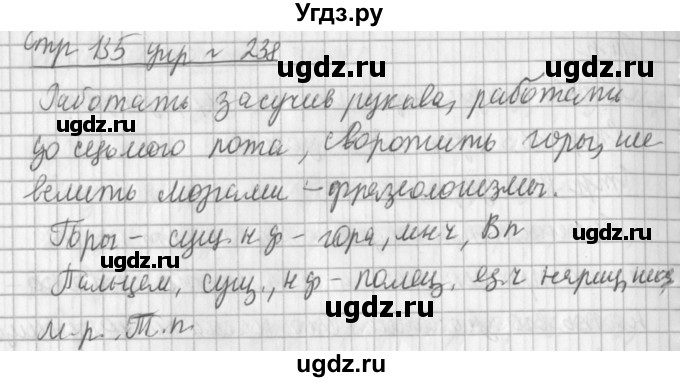 Угдз.ру
Стр 135 упр № 238
ugdz.ru ugdz.ru
Работать засучив рукава, работать
ugdz.ru
до седьмого пота, своротить горы, ше
ugdz.ru
велить мозгами - фразеологизмы.
Горы - сущ. н ф - гора, мн ч, В п
ugdz.ru
Пальцем, сущ., н ф - палец, ед.ч нариц, неод,
ugdz.ru
м.р., Т.п.
ugdz.ru ugdz.ru